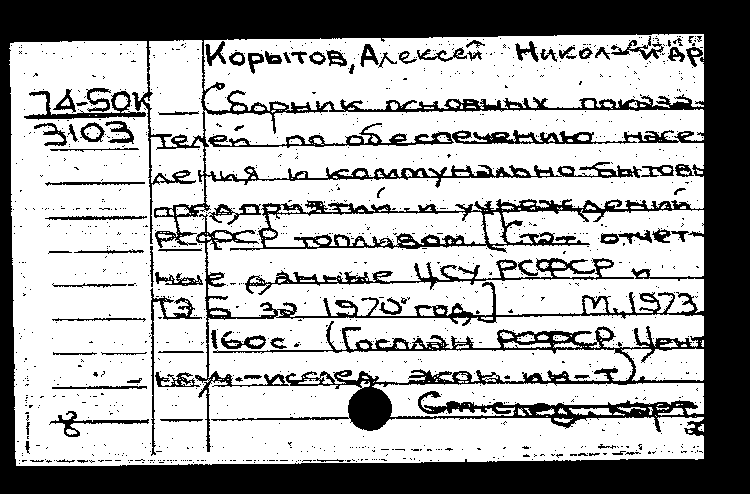 Корытов, Алексей Никол. и др.
74-50К Сборник основных показа-
3103 телей по обеспечению насе-
ления и коммунально-бытовых
предприятий и учреждений
РСФСР топливом. [Стат. отчет-
ные данные ЦСУ РСФСР и
ТЭБ за 1970 год.]. М., 1973.
160с. (Госплан РСФСР. Цент
науч.-исслед. экон. ин-т).
См. след. карт
8